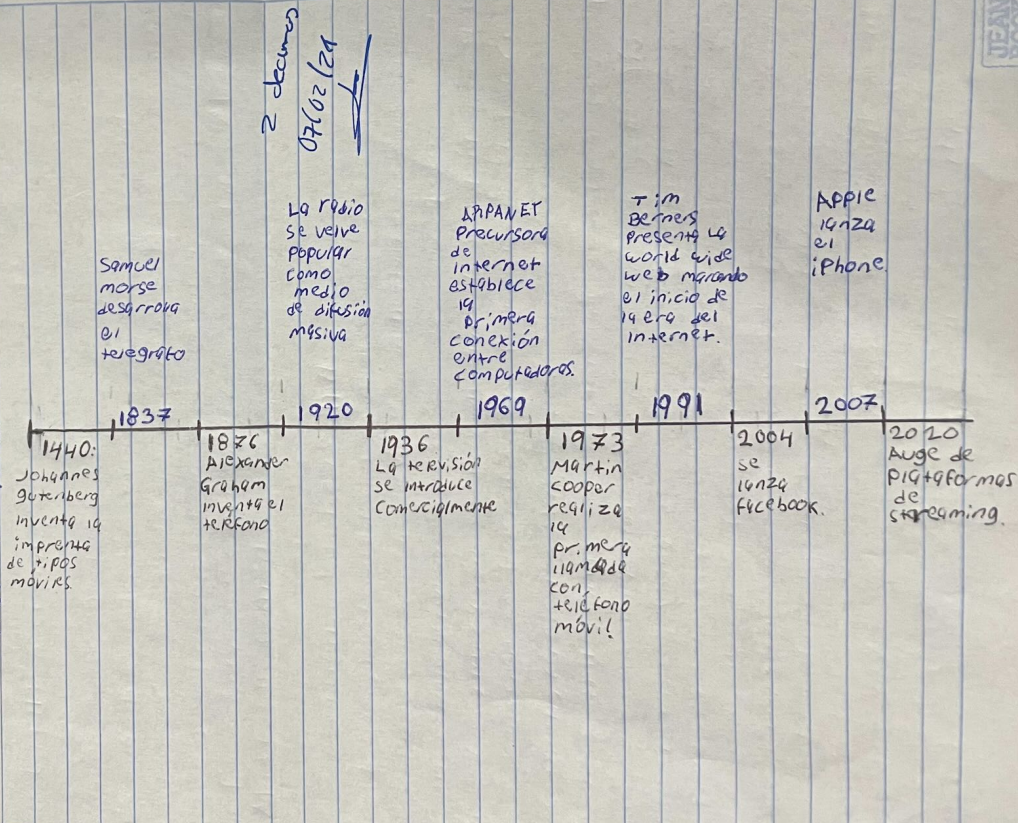 2 decimos
07/02/24
Samuel
morse
desarrova
el
telegrafo
1837
La radio
se velve
popular
como
medio
de difusión
masiva
1920
ARPANET
Precursora
de
internet
establece
la
primera
conexión
entre
computadoras.
1969
Tim
Berners
presenta La
world wide
web marcando
el inicio de
la era del
Internet.
1991
Apple
lanza
el
iPhone.
2007
1440:
Johannes
gutenberg
inventa la
imprenta
de tipos
móviles.
1876
Alexander
Graham
inventa el
teléfono
1936
La televisión
se introduce
comercialmente
1973
Martin
cooper
realiza
la
primera
llamada
con
teléfono
móvil
2004
se
lanza
facebook.
2020
Auge de
plataformas
de
streaming.
JEAN